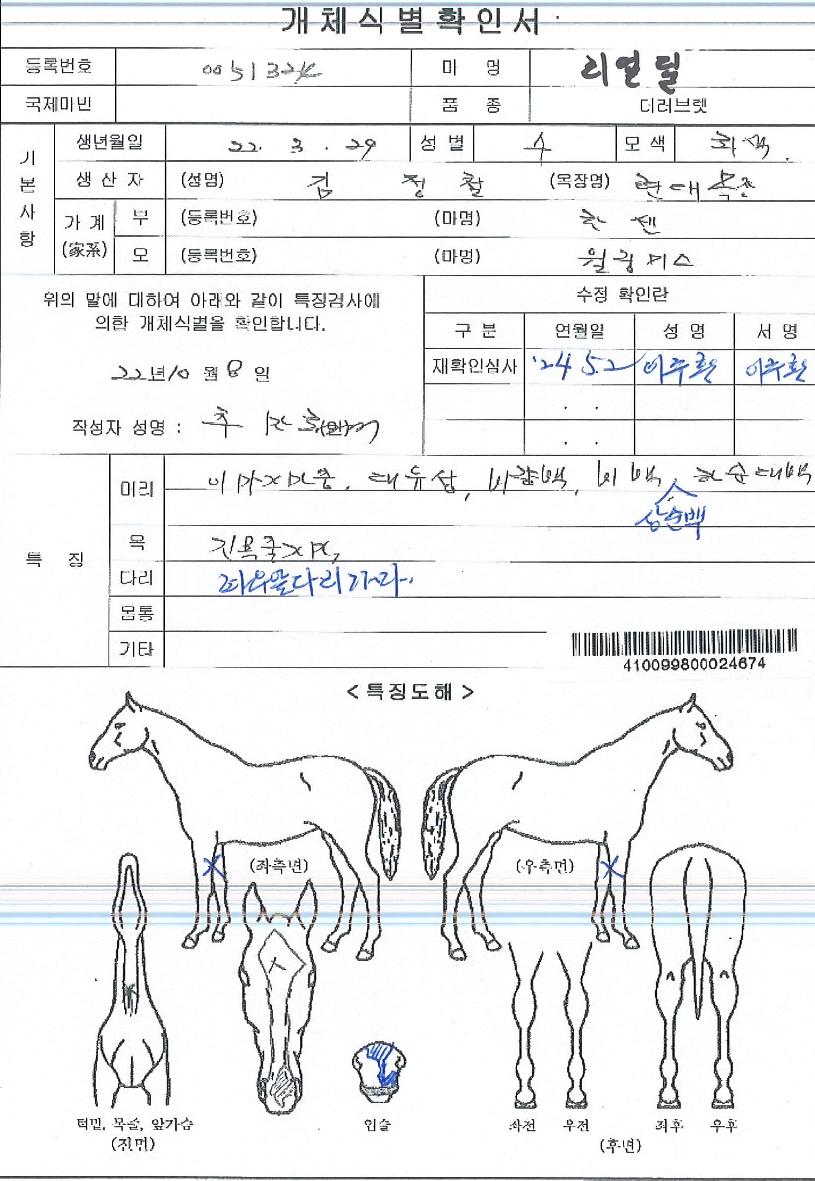 개체식별확인서
등록번호 0051324 마 명 리얼딜
국제마번 품 종 더러브렛
기본사항
생년월일 22. 3. 29 성 별 수 모 색 회색.
생 산 자 (성명) 김 정 철 (목장명) 현대목장
가 계 (家系) 부 (등록번호) (마명) 한 센
모 (등록번호) (마명) 월링미스
위의 말에 대하여 아래와 같이 특징검사에
의한 개체식별을 확인합니다.
22년10 월 8 일
작성자 성명 : 추
수정 확인란
구 분 연월일 성 명 서 명
재확인심사 '24 5.2
특 징
머리 이마 대유성, 비량백, 비백, 하순대백
상순백
목
다리
몸통
기타
410099800024674
< 특징도해 >
(좌측면) (우측면)
턱밑, 목줄, 앞가슴 입술 좌전 우전 좌후 우후
(전면) (후면)